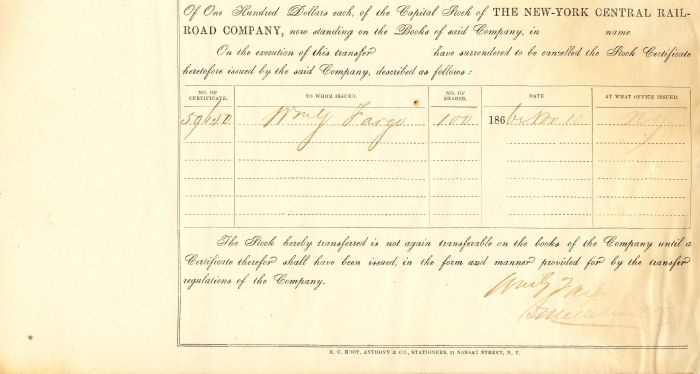 Of One Hundred Dollars each, of the Capital Stock of THE NEW-YORK CENTRAL RAIL-
ROAD COMPANY, now standing on the Books of said Company, in name
On the execution of this transfer have surrendered to be cancelled the Stock Certificate
heretofore issued by the said Company, described as follows:
NO. OF CERTIFICATE. TO WHOM ISSUED. NO. OF SHARES. DATE AT WHAT OFFICE ISSUED.
Wm G Fargo 100 1866 Nov. 10 N.Y.
The Stock hereby transferred is not again transferable on the books of the Company until a
Certificate therefor shall have been issued, in the form and manner provided for by the transfer
regulations of the Company.
Wm G Fargo
R. C. ROOT, ANTHONY & CO., STATIONERS, 21 NASSAU STREET, N. Y.